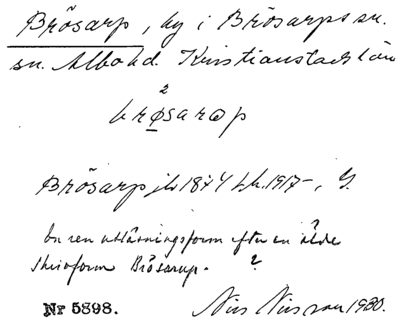 Brösarp, by i Brösarps sn.
sn. Albo hd. Kristianstads län
2
brøsarap
Brösarp jb 1874 Lk. 1917–, G.
En ren utläsningsform efter en äldre
skrivform Brösarup. ?
Nr 5898.
Nils Nilsson 1930.